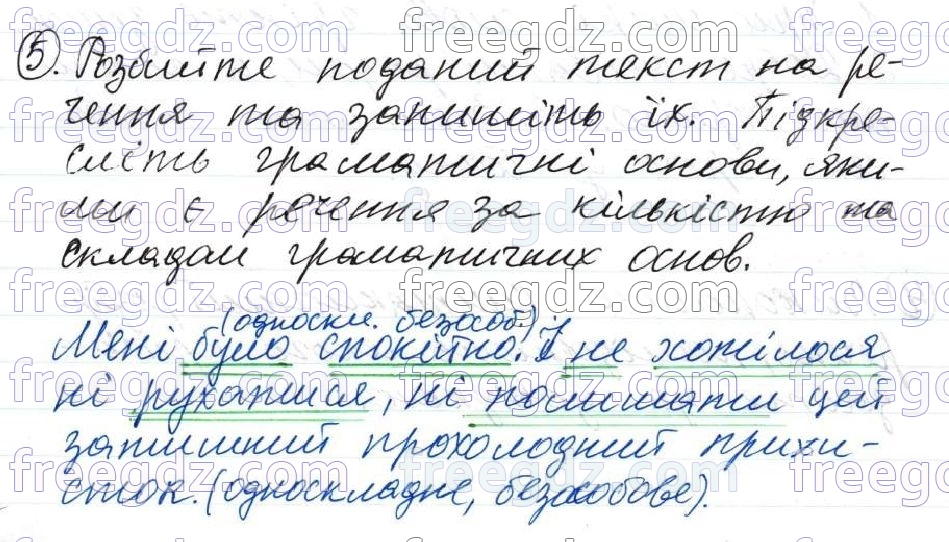 5. Розбийте поданий текст на ре-
чення та запишіть їх. Підкре-
сліть граматичні основи, яки-
ми є речення за кількістю та
складом граматичних основ.
(односкл. безособ.)
Мені було спокійно. І не хотілося
ні рухатися, ні полишати цей
затишний прохолодний прихи-
сток. (односкладне, безособове).
freegdz.com